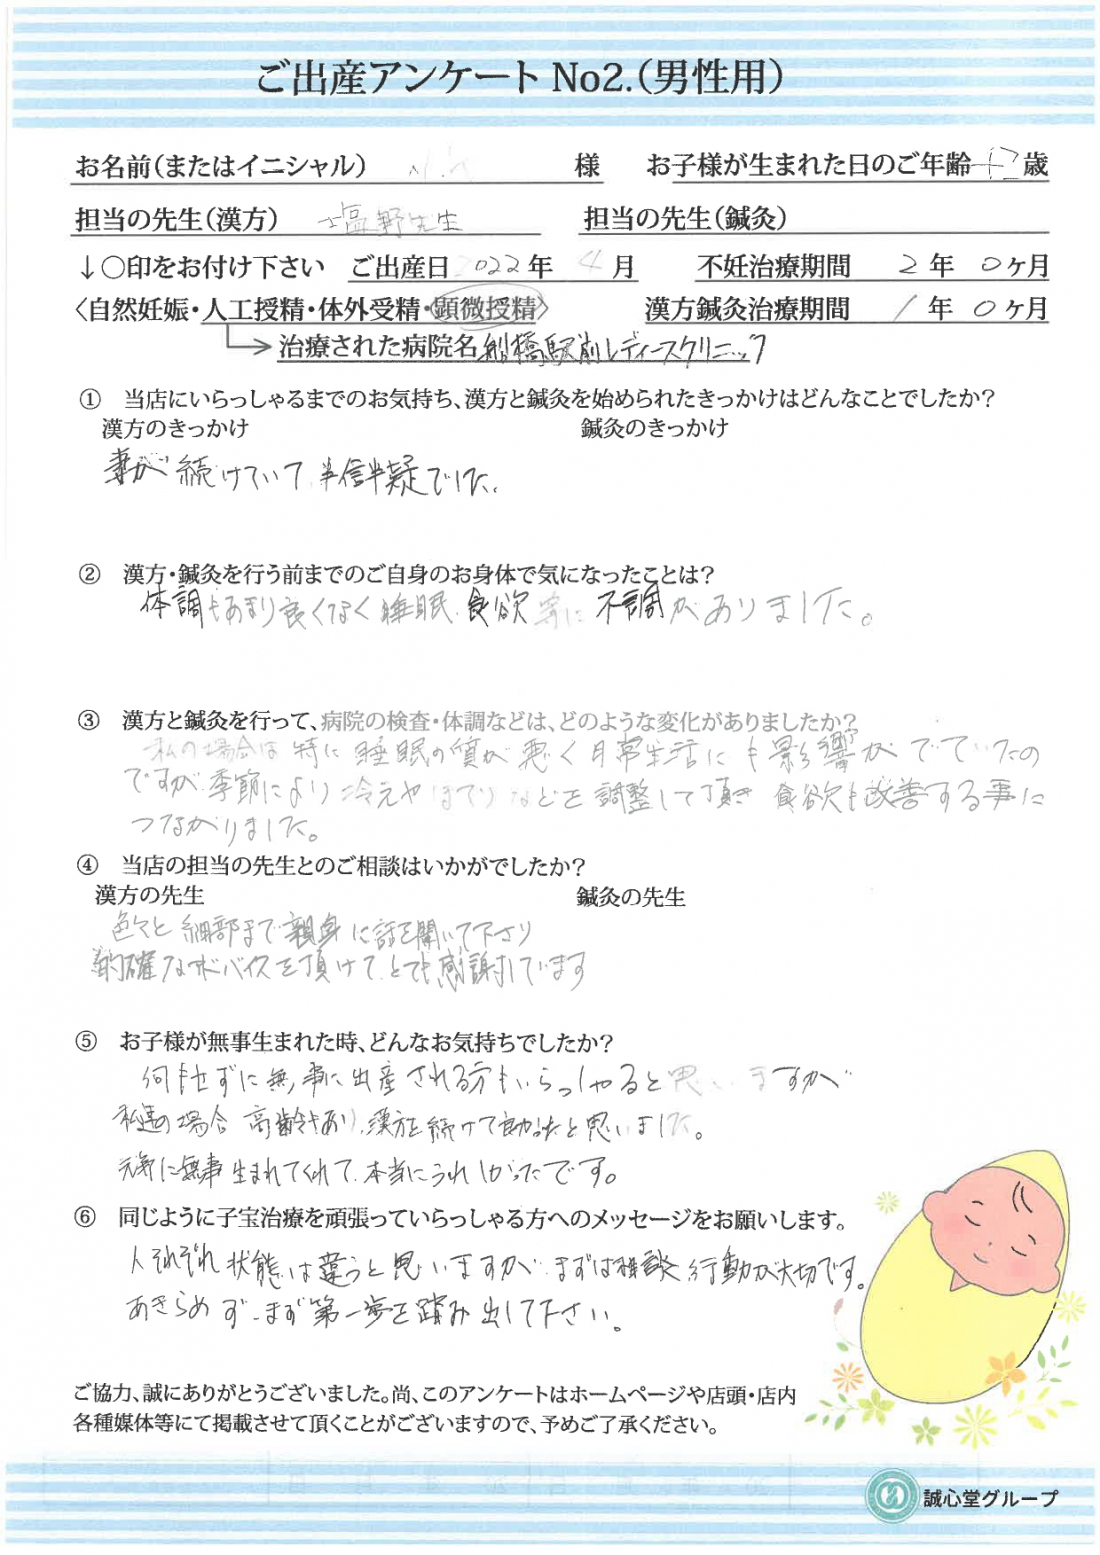 ご出産アンケート No2.（男性用）
お名前（またはイニシャル） 様 お子様が生まれた日のご年齢 歳
担当の先生（漢方） 塩野先生 担当の先生（鍼灸）
↓○印をお付け下さい ご出産日 2022年 4月 不妊治療期間 2年 0ヶ月
〈自然妊娠・人工授精・体外受精・顕微授精〉 漢方鍼灸治療期間 1年 0ヶ月
治療された病院名 船橋駅前レディースクリニック
① 当店にいらっしゃるまでのお気持ち、漢方と鍼灸を始められたきっかけはどんなことでしたか？
漢方のきっかけ 鍼灸のきっかけ
妻が続けていて、半信半疑でした。
② 漢方・鍼灸を行う前までのご自身のお身体で気になったことは？
体調もあまり良くなく睡眠、食欲等に不調がありました。
③ 漢方と鍼灸を行って、病院の検査・体調などは、どのような変化がありましたか？
私の場合は特に睡眠の質が悪く日常生活にも影響がでていたの
ですが、季節により冷えやほてりなどを調整して頂き 食欲も改善する事に
つながりました。
④ 当店の担当の先生とのご相談はいかがでしたか？
漢方の先生 鍼灸の先生
色々と細部まで親身に話を聞いて下さり
的確なアドバイスを頂けて、とても感謝しています
⑤ お子様が無事生まれた時、どんなお気持ちでしたか？
何もせずに無事に出産される方もいらっしゃると思いますが
私達の場合 高齢もあり、漢方を続けて良かったと思いました。
元気に無事生まれてくれて、本当にうれしかったです。
⑥ 同じように子宝治療を頑張っていらっしゃる方へのメッセージをお願いします。
人それぞれ状態は違うと思いますが、まずは相談、行動が大切です。
あきらめず、まず第一歩を踏み出して下さい。
ご協力、誠にありがとうございました。尚、このアンケートはホームページや店頭・店内
各種媒体等にて掲載させて頂くことがございますので、予めご了承ください。
誠心堂グループ